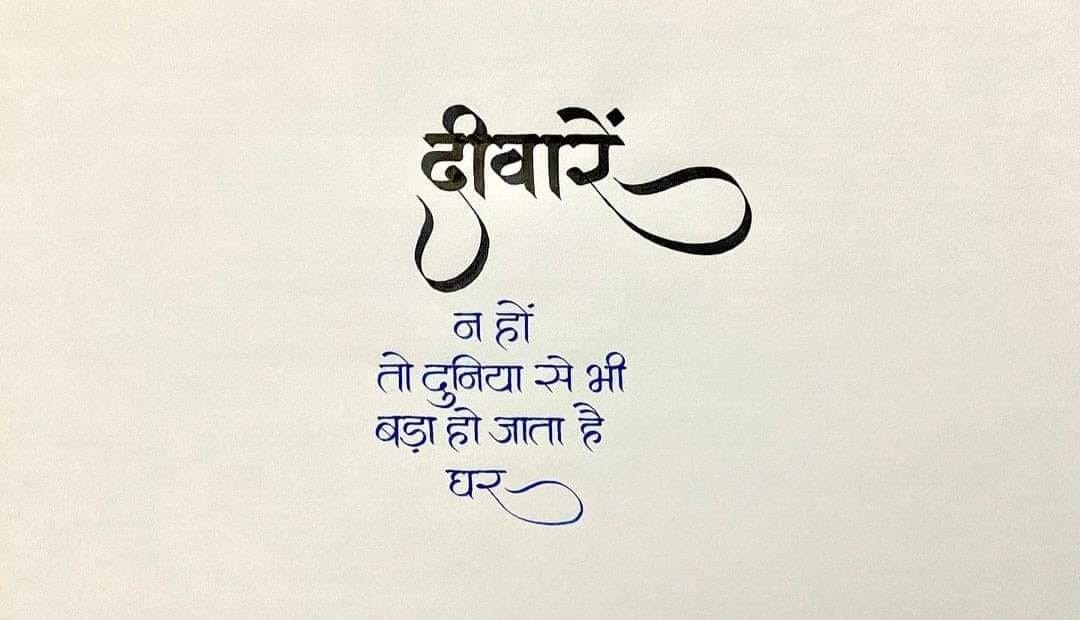 दीवारें
न हों
तो दुनिया से भी
बड़ा हो जाता है
घर